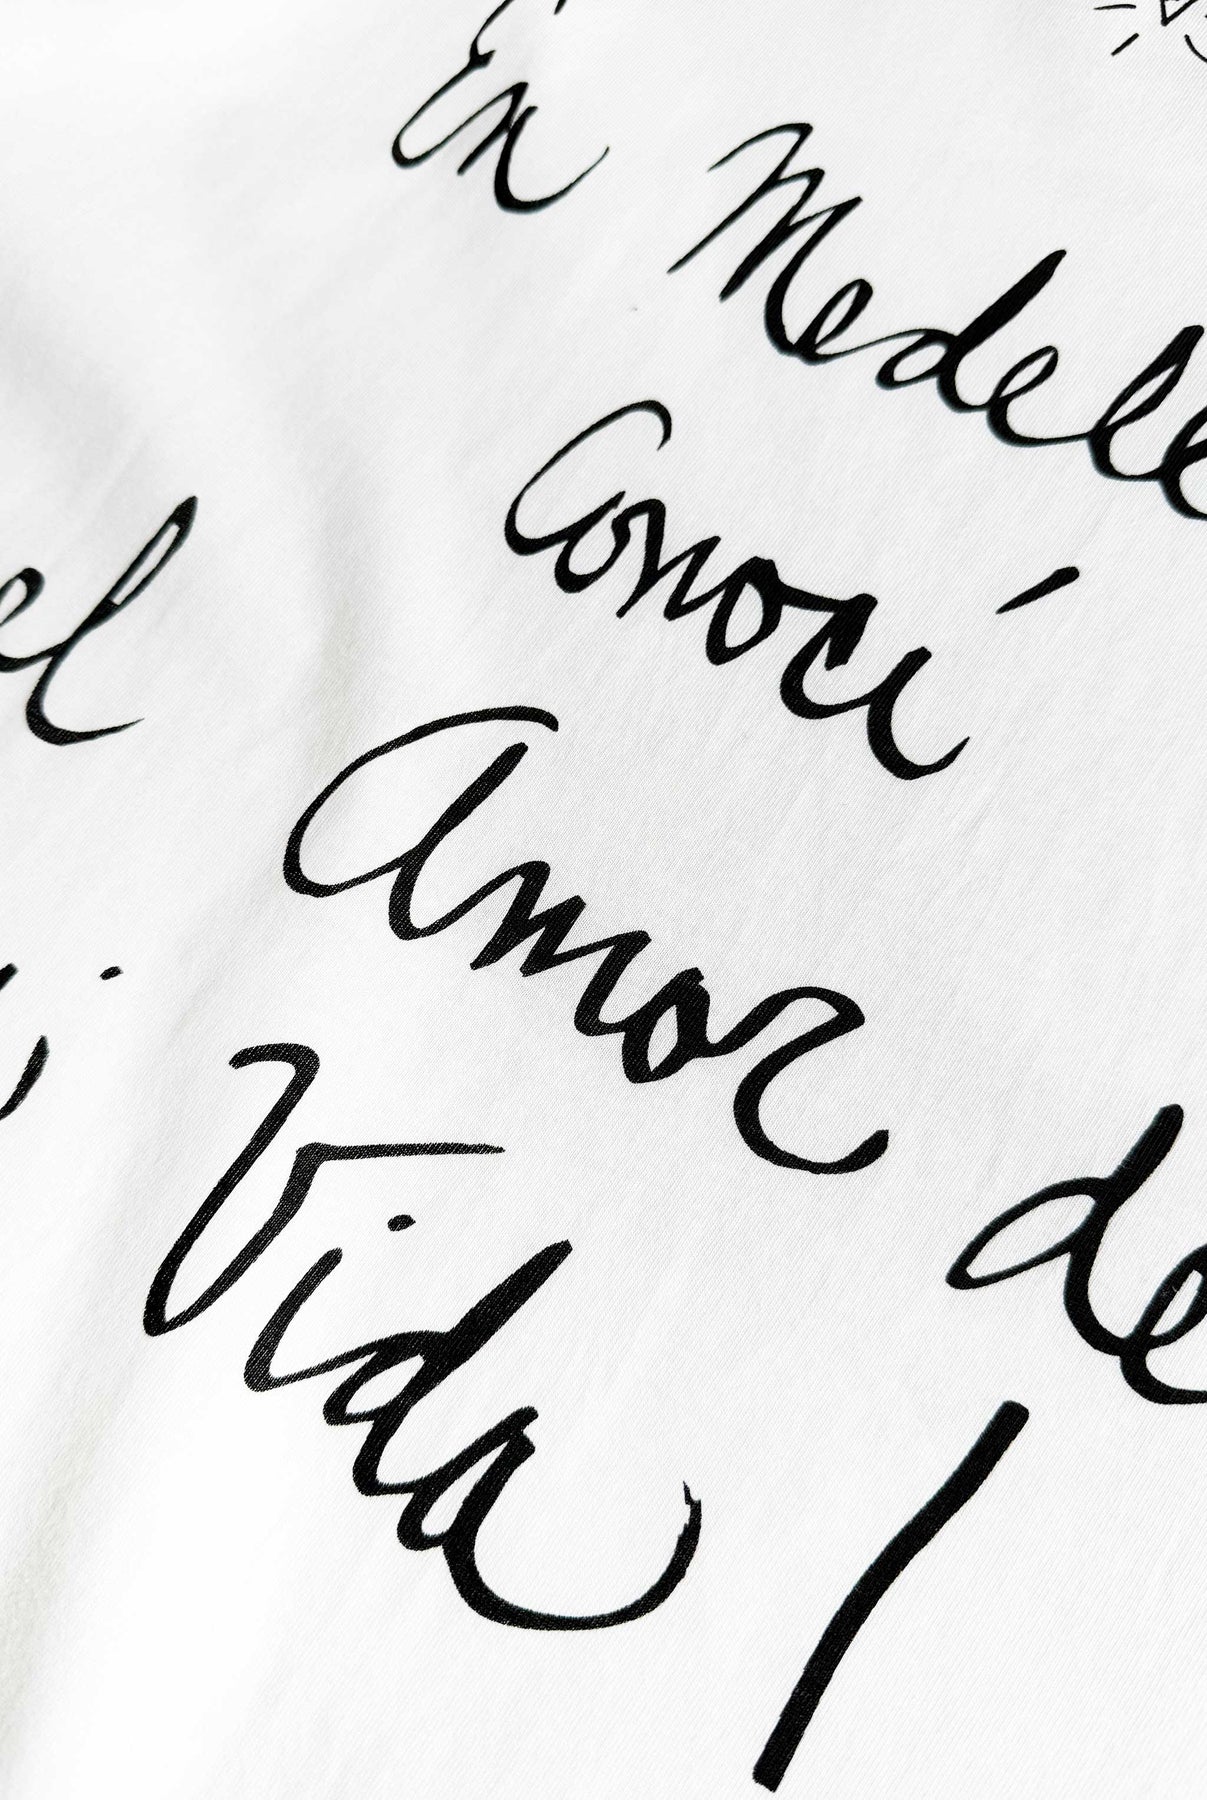 En Medell
Conocí
el
Amor de
Vida